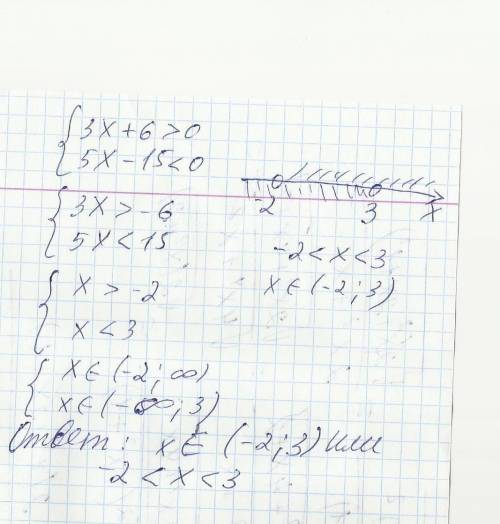 3x+6>0
5x-15<0
3x>-6
5x<15
x>-2
x<3
x∈(-2;∞)
x∈(-∞;3)
-2 3 x
-2<x<3
x∈(-2;3)
Ответ: x∈(-2;3) или
-2<x<3